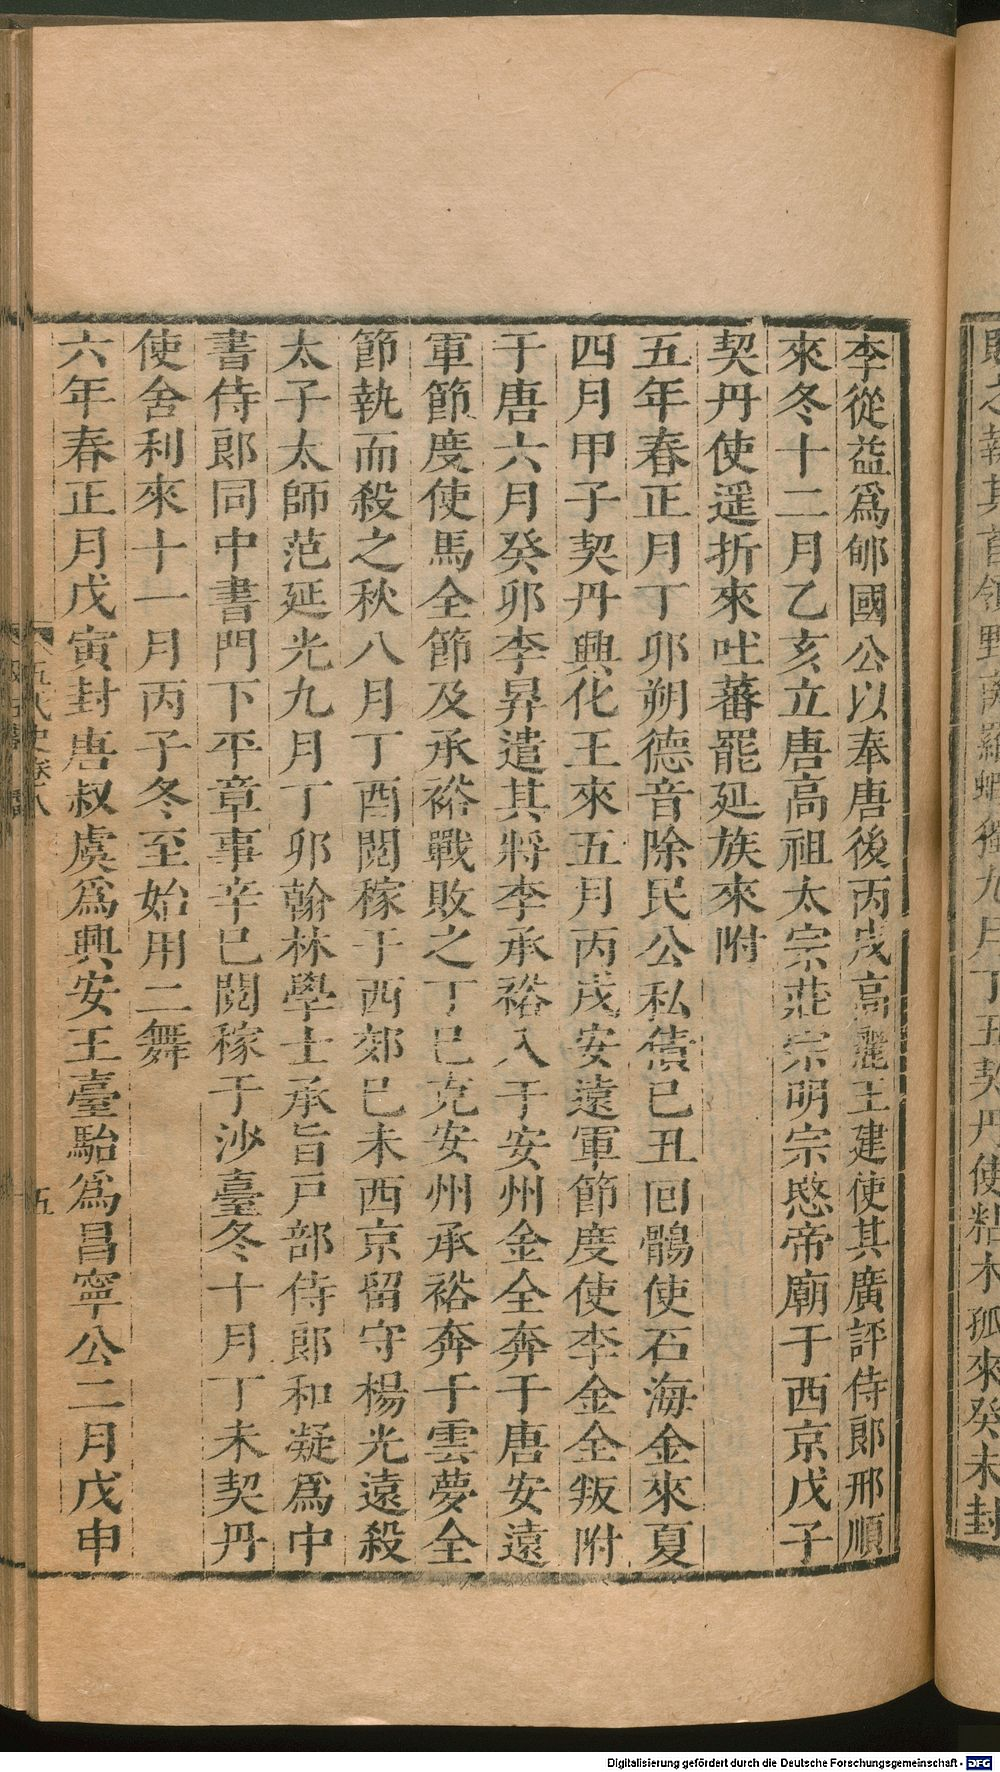 李從益爲郇國公以奉唐後丙戌高麗王建使其廣評侍郎邢順
來冬十二月乙亥立唐高祖太宗莊宗明宗愍帝廟于西京戊子
契丹使遥折來吐蕃罷延族來附
五年春正月丁卯朔德音除民公私債已丑回鶻使石海金來夏
四月甲子契丹興化王來五月丙戌安遠軍節度使李金全叛附
于唐六月癸卯李昇遣其將李承裕入于安州金全奔于唐安遠
軍節度使馬全節及承裕戰敗之丁巳克安州承裕奔于雲夢全
節執而殺之秋八月丁酉閱稼于西郊已未西京留守楊光遠殺
太子太師范延光九月丁卯翰林學士承旨戸部侍郎和凝爲中
書侍郎同中書門下平章事辛已閱稼于沙臺冬十月丁未契丹
使舍利來十一月丙子冬至始用二舞
六年春正月戊寅封唐叔虞爲興安王臺駘爲昌寧公二月戊申
五代史卷八
五
其舊領
九月丁丑契丹使粘木孤來癸未封
Digitalisierung gefördert durch die Deutsche Forschungsgemeinschaft - DFG